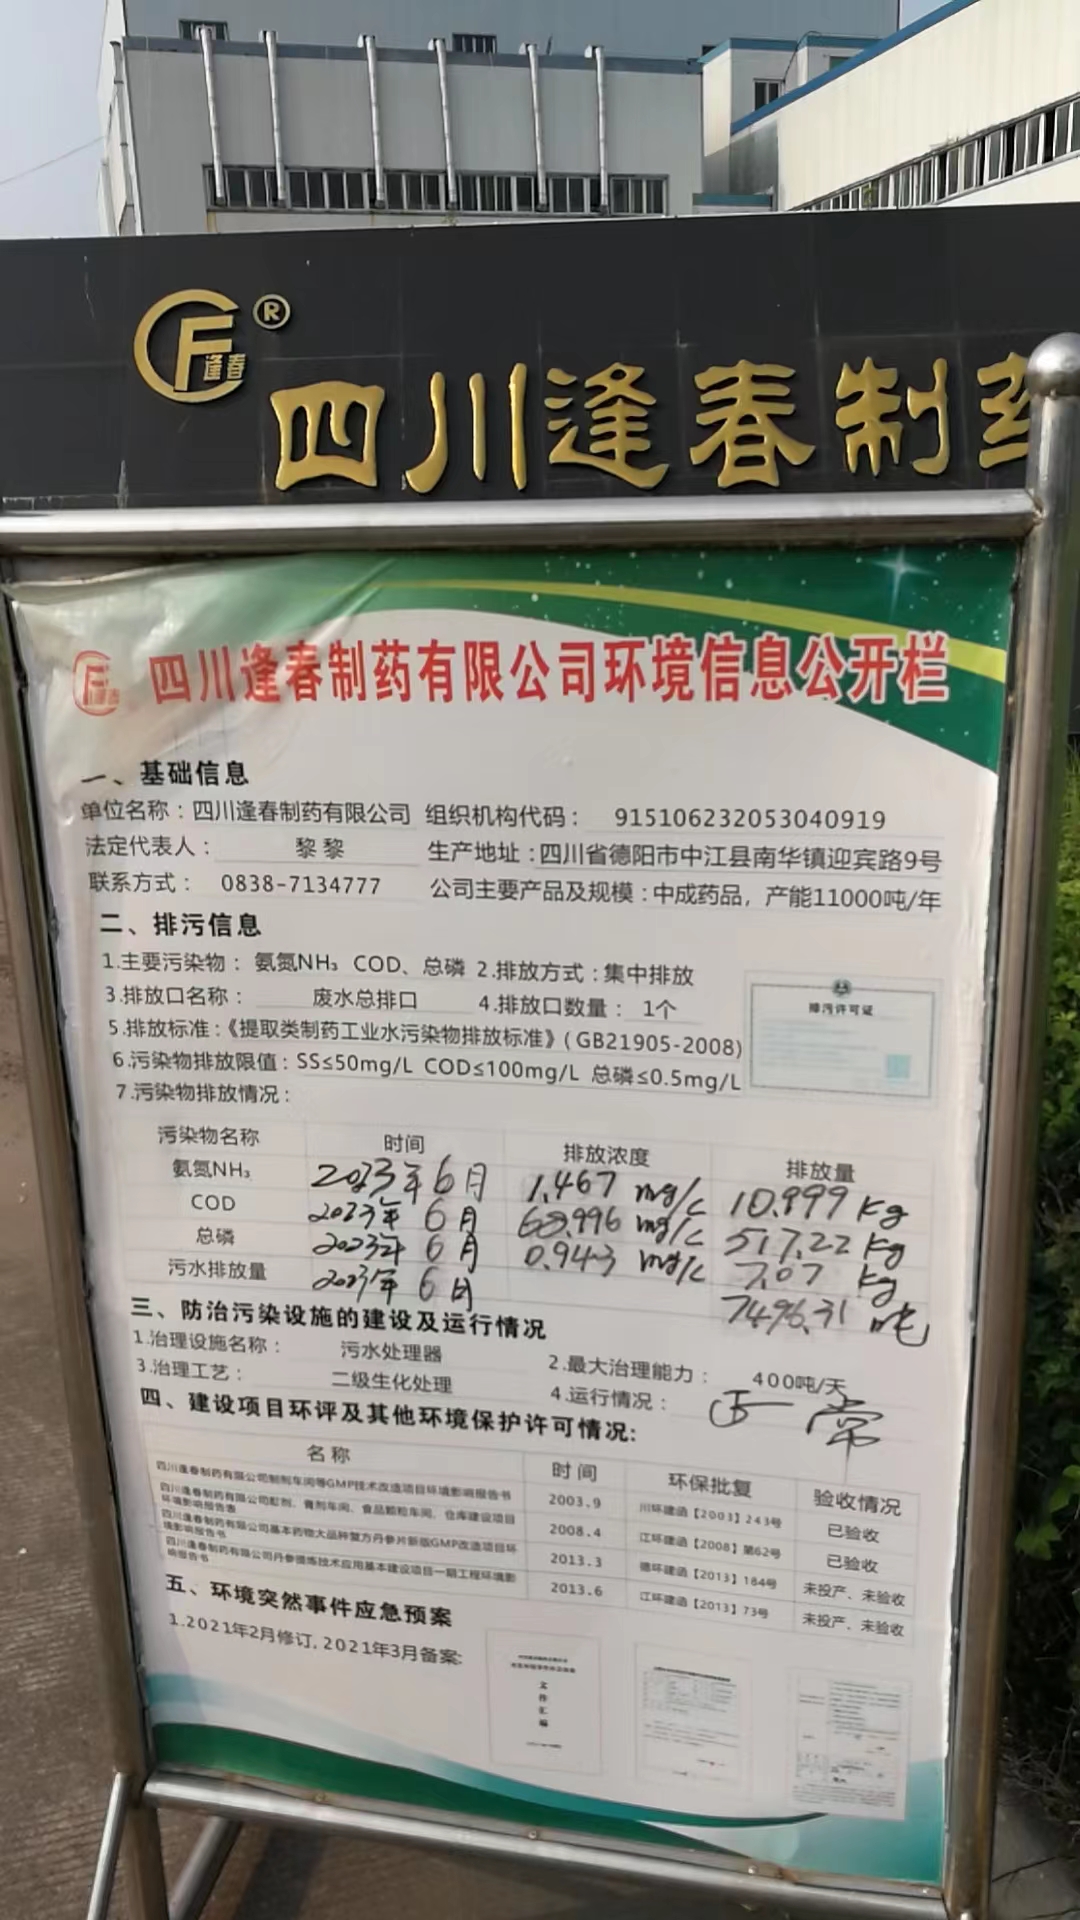 CF 逢春 ®
四川逢春制药
四川逢春制药有限公司环境信息公开栏
一、基础信息
单位名称：四川逢春制药有限公司 组织机构代码： 915106232053040919
法定代表人： 黎黎 生产地址：四川省德阳市中江县南华镇迎宾路9号
联系方式： 0838-7134777 公司主要产品及规模：中成药品，产能11000吨/年
二、排污信息
1.主要污染物： 氨氮NH₃ COD、总磷 2.排放方式：集中排放
3.排放口名称： 废水总排口 4.排放口数量： 1个
5.排放标准：《提取类制药工业水污染物排放标准》(GB21905-2008)
6.污染物排放限值：SS≤50mg/L COD≤100mg/L 总磷≤0.5mg/L
7.污染物排放情况：
排污许可证
污染物名称 时间 排放浓度 排放量
氨氮NH₃ 2023年6月 1.467 mg/L 10.999 Kg
COD 2023年6月 mg/L 517.22 Kg
总磷 2023年6月 0.943 mg/L 7.07 Kg
污水排放量 2023年6月 7496.31 吨
三、防治污染设施的建设及运行情况
1.治理设施名称： 污水处理器 2.最大治理能力： 400吨/天
3.治理工艺： 二级生化处理 4.运行情况： 正常
四、建设项目环评及其他环境保护许可情况:
名称 时间 环保批复 验收情况
四川逢春制药有限公司制剂车间等GMP技术改造项目环境影响报告书 2003.9 川环建函【2003】243号 已验收
四川逢春制药有限公司酊剂、膏剂车间、食品颗粒车间、仓库建设项目
环境影响报告表 2008.4 江环建函【2008】第62号 已验收
四川逢春制药有限公司基本药物大品种复方丹参片新版GMP改造项目环
境影响报告书 2013.3 德环建函【2013】184号 未投产、未验收
四川逢春制药有限公司丹参提炼技术应用基本建设项目一期工程环境影
响报告书 2013.6 江环建函【2013】73号 未投产、未验收
五、环境突然事件应急预案
1.2021年2月修订，2021年3月备案:
文件汇编